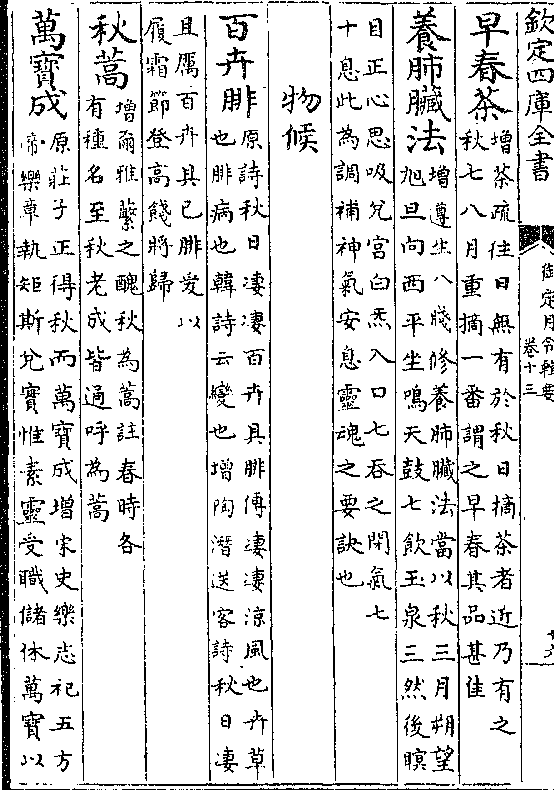 欽定四庫全書
御定月令輯要
卷十三
早春茶
增茶疏往日無有於秋日摘茶者近乃有之
秋七八月重摘一番謂之早春其品甚佳
養肺臟法
增遵生八牋修養肺臟法當以秋三月朔望
旭旦向西平坐鳴天鼓七飲玉泉三然後瞑
目正心思吸兌宮白炁入口七吞之閉氣七
十息此為調補神氣安息靈魂之要訣也
物候
百卉腓
原詩秋日凄凄百卉具腓傳凄凄涼風也卉草
也腓病也韓詩云變也增陶潛送客詩秋日凄
且厲百卉具已腓爰以
履霜節登高餞將歸
秋蒿
增爾雅蘩之醜秋為蒿註春時各
有種名至秋老成皆通呼為蒿
萬寶成
原莊子正得秋而萬寶成增宋史樂志祀五方
帝樂章執矩斯兌實惟素靈受職儲休萬寶以